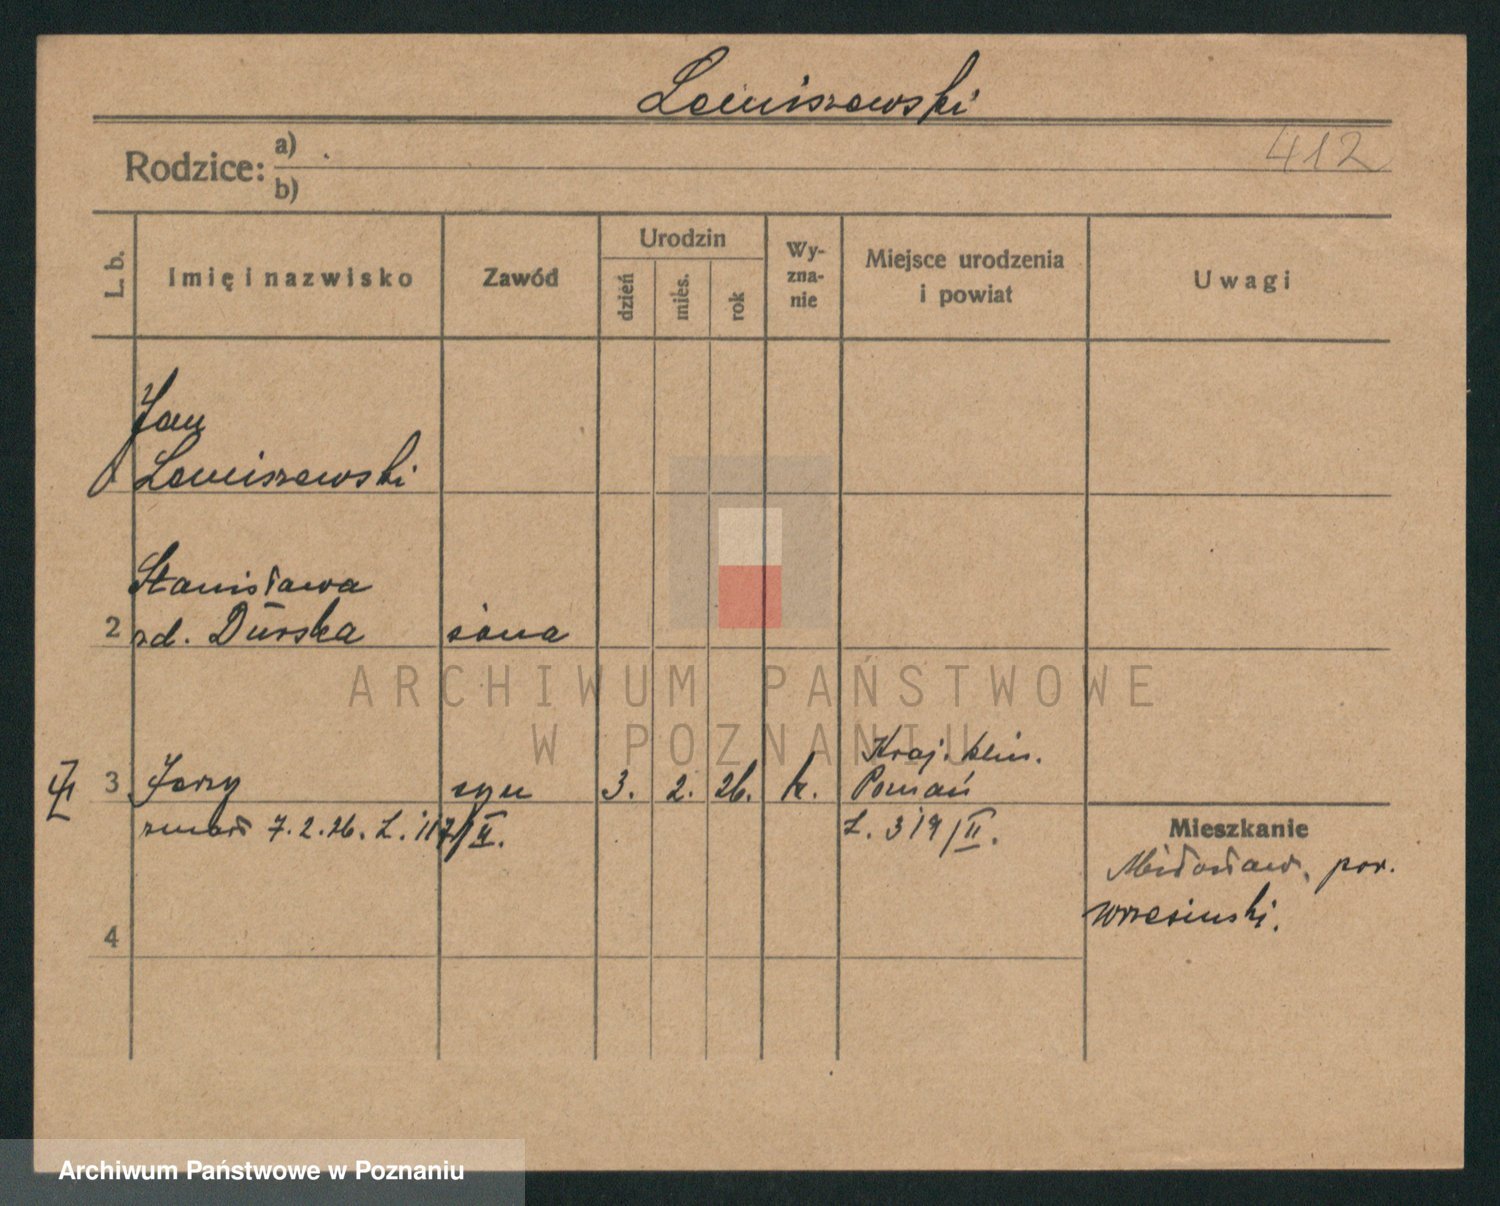 412
Rodzice: a)
b)
L. b.
Imię i nazwisko
Zawód
Urodzin
dzień
mies.
rok
Wy-
zna-
nie
Miejsce urodzenia
i powiat
Uwagi
Jan
Stanisława
2 zd. Durska żona
3 Jerzy syn 3. 2. 26. k. Kraj. klin.
Poznań
zmarł 7.2.26. L. 117/II.
L. 319/II.
Mieszkanie
Miłosław, pow.
wrzesiński.
4
ARCHIWUM PAŃSTWOWE
W POZNANIU
Archiwum Państwowe w Poznaniu